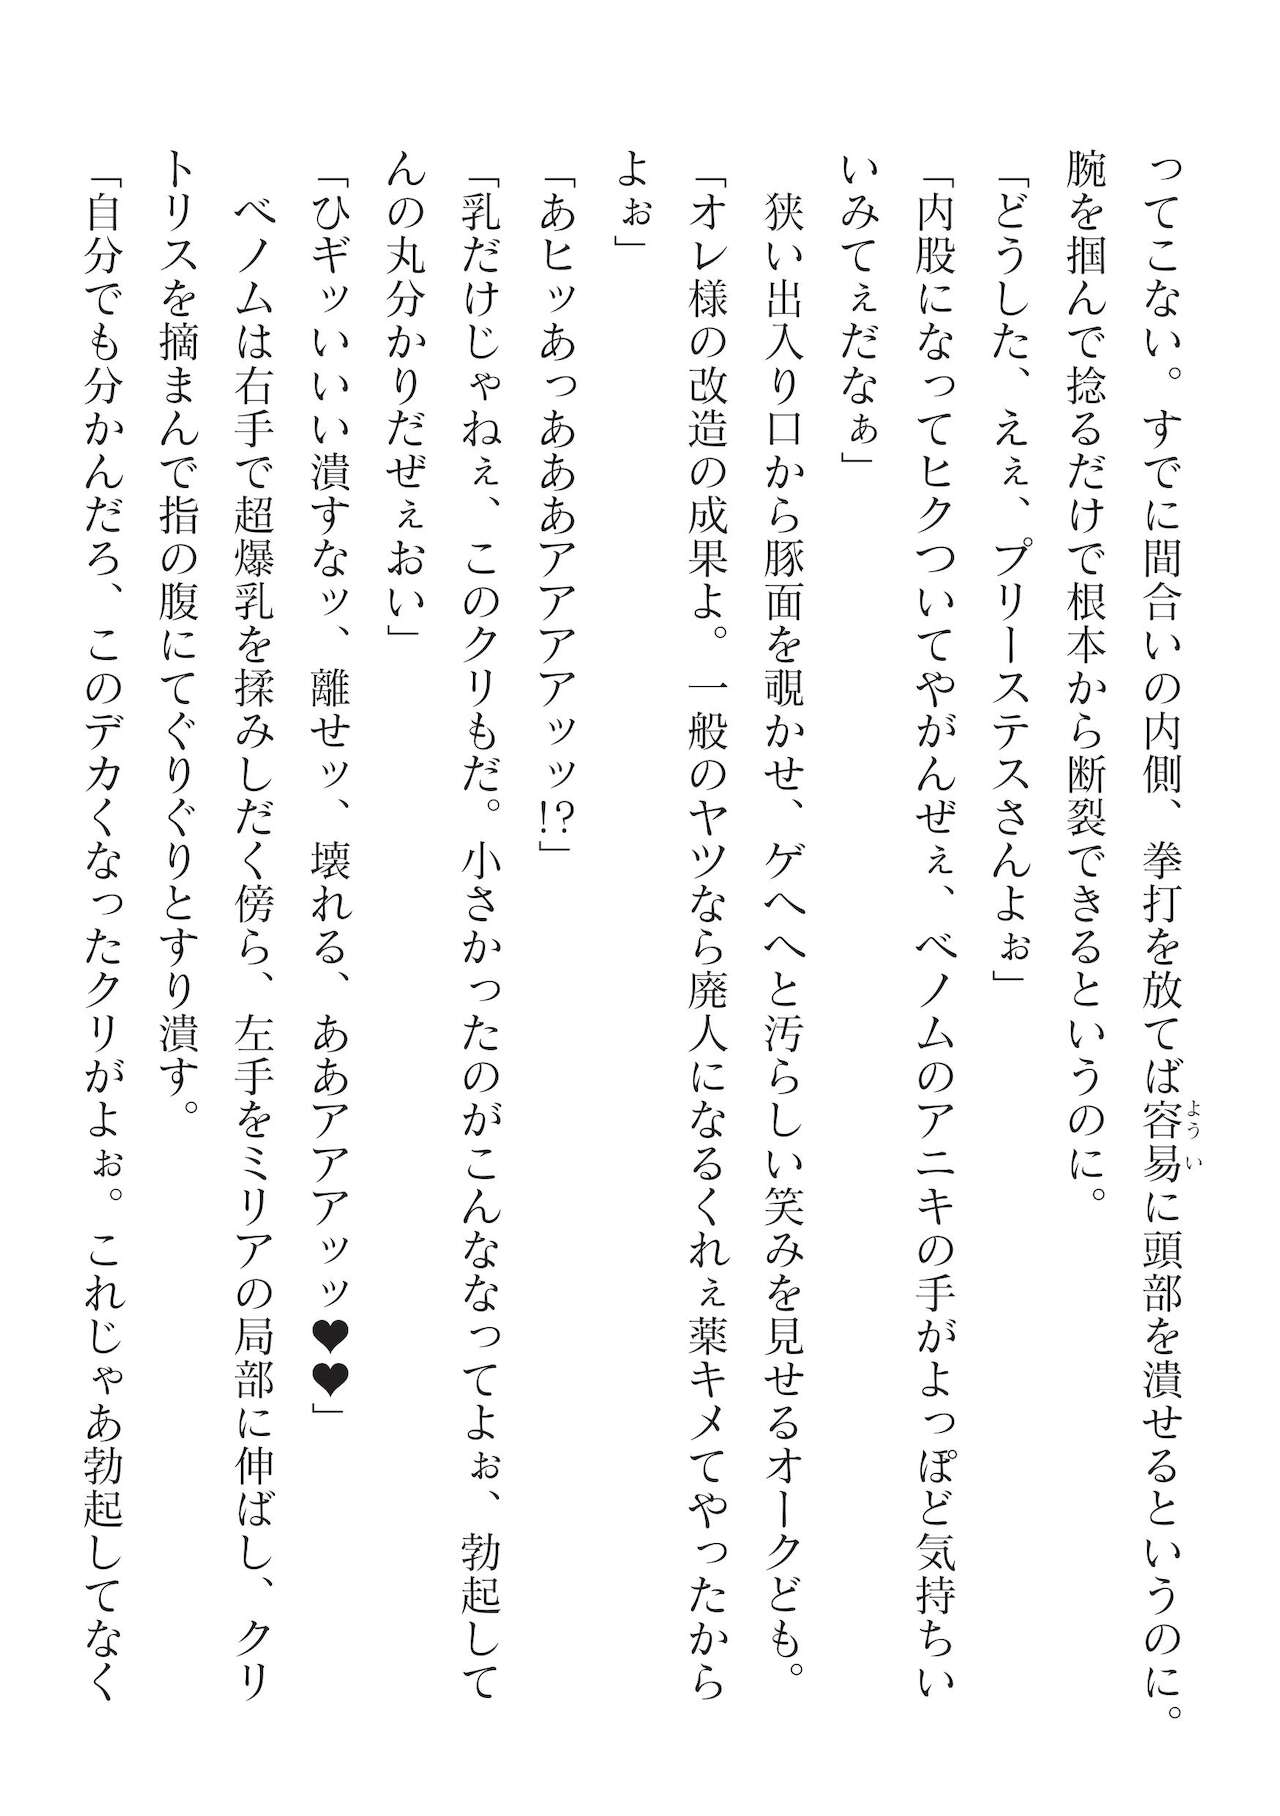 ってこない。すでに間合いの内側、拳打を放てば容易に頭部を潰せるというのに。
腕を掴んで捻るだけで根本から断裂できるというのに。
「どうした、えぇ、プリーステスさんよぉ」
「内股になってヒクついてやがんぜぇ、ベノムのアニキの手がよっぽど気持ちい
いみてぇだなぁ」
狭い出入り口から豚面を覗かせ、ゲヘヘと汚らしい笑みを見せるオークども。
「オレ様の改造の成果よ。一般のヤツなら廃人になるくれぇ薬キメてやったから
よぉ」
「あヒッあっあああアアアアッッ!?」
「乳だけじゃねぇ、このクリもだ。小さかったのがこんななってよぉ、勃起して
んの丸分かりだぜぇおい」
「ひギッいいい潰すなッ、離せッ、壊れる、ああアアアッッ♥♥」
ベノムは右手で超爆乳を揉みしだく傍ら、左手をミリアの局部に伸ばし、クリ
トリスを摘まんで指の腹にてぐりぐりとすり潰す。
「自分でも分かんだろ、このデカくなったクリがよぉ。これじゃあ勃起してなく
ようい